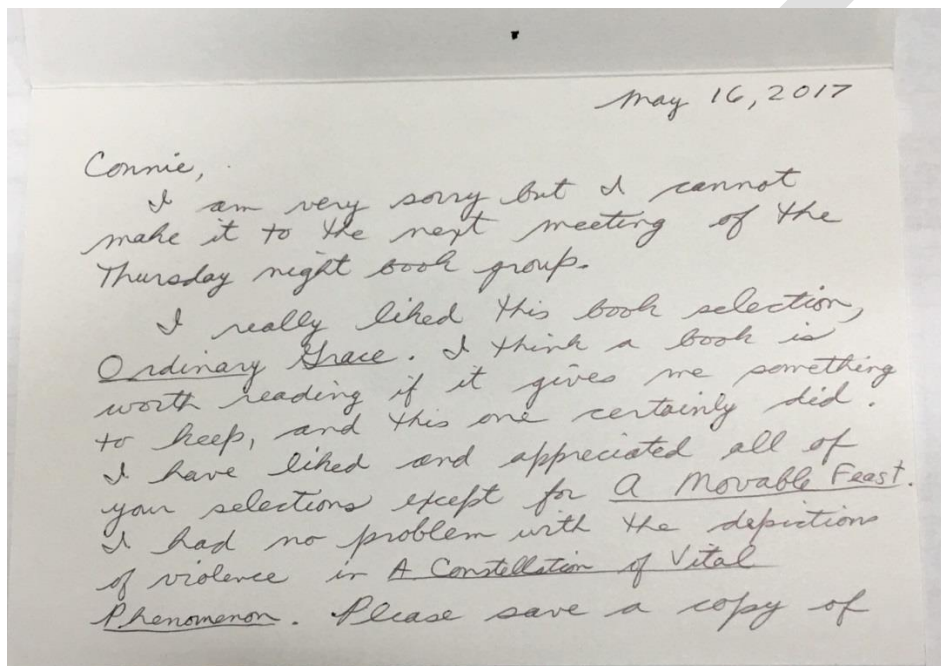 May 16, 2017
Connie,
I am very sorry but I cannot
make it to the next meeting of the
Thursday night book group.
I really liked this book selection,
Ordinary Grace. I think a book is
worth reading if it gives me something
to keep, and this one certainly did.
I have liked and appreciated all of
your selections except for A Movable Feast.
I had no problem with the depictions
of violence in A Constellation of Vital
Phenomenon. Please save a copy of